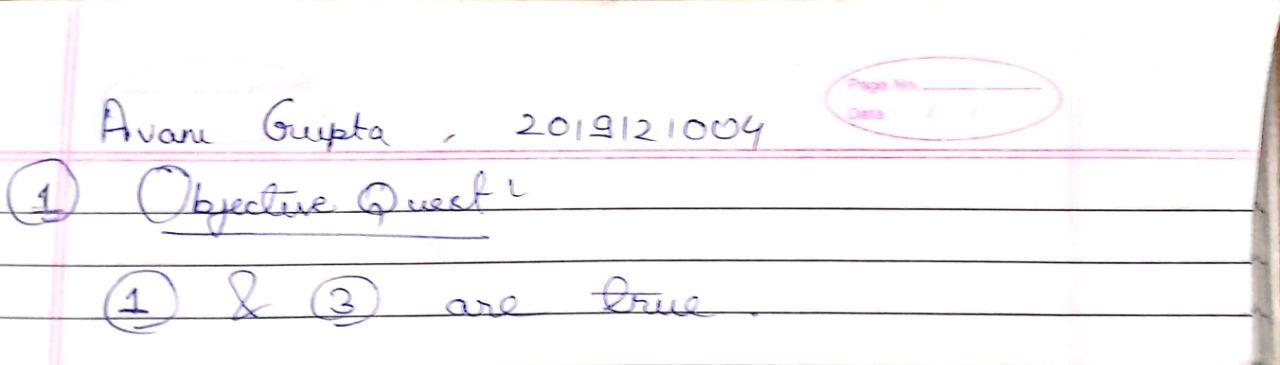 Page No.
Date / /
Avani Gupta, 2019121004
① Objective Quest
① & ③ are true.